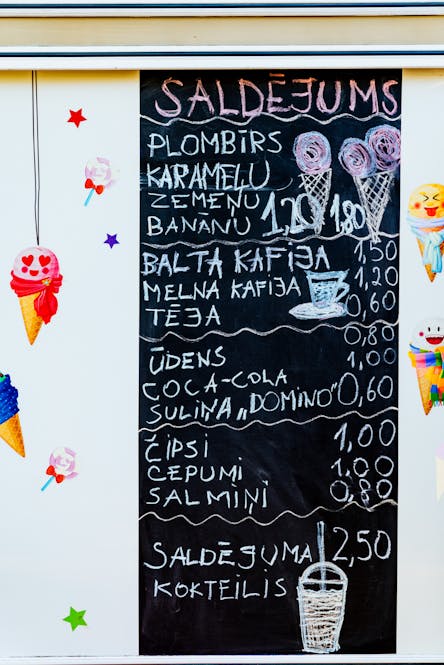 SALDĒJUMS
PLOMBĪRS
KARAMEĻU
ZEMEŅU
BANĀNU 1,20 1,80
BALTA KAFIJA 1,50
MELNA KAFIJA 1,20
TĒJA 0,60
ŪDENS 0,80
COCA-COLA 1,00
SULIŅA „DOMINO" 0,60
ČIPSI 1,00
CEPUMI 1,00
SALMIŅI 0,80
SALDĒJUMA 2,50
KOKTEILIS